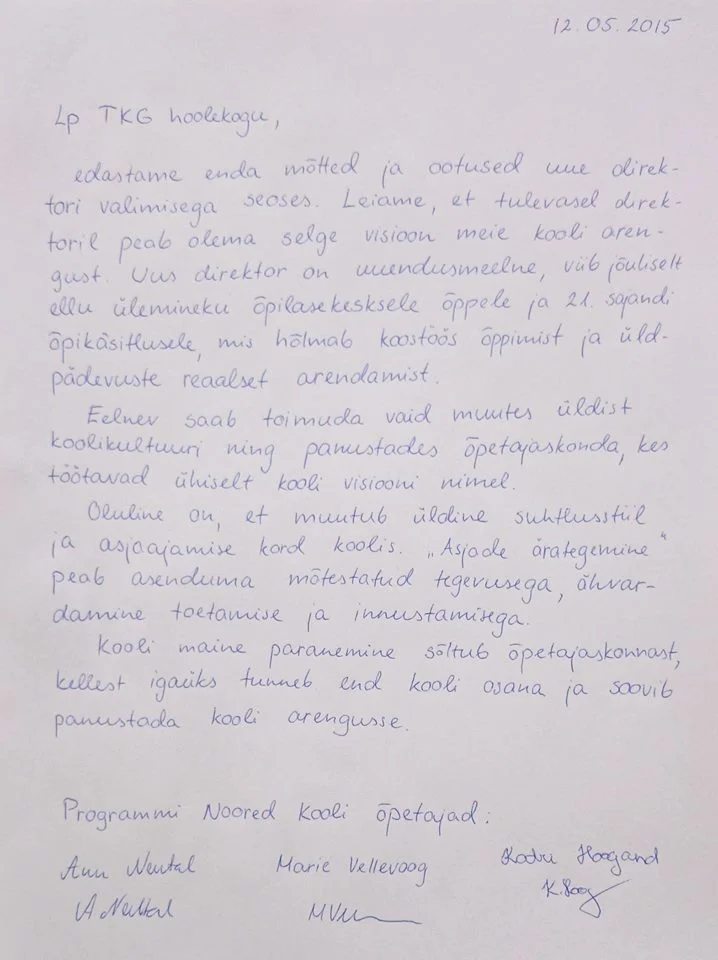 12.05.2015
Lp TKG hoolekogu,
edastame enda mõtted ja ootused uue direk-
tori valimisega seoses. Leiame, et tulevasel direk-
toril peab olema selge visioon meie kooli aren-
gust. Uus direktor on uuendusmeelne, viib jõuliselt
ellu ülemineku õpilasekesksele õppele ja 21. sajandi
õpikäsitlusele, mis hõlmab koostöös õppimist ja üld-
pädevuste reaalset arendamist.
Eelnev saab toimuda vaid muutes üldist
koolikultuuri ning panustades õpetajaskonda, kes
töötavad ühiselt kooli visiooni nimel.
Oluline on, et muutub üldine suhtlusstiil
ja asjaajamise kord koolis. „Asjade ärategemine“
peab asenduma mõtestatud tegevusega, ähvar-
damine toetamise ja innustamisega.
Kooli maine paranemine sõltub õpetajaskonnast,
kellest igaüks tunneb end kooli osana ja soovib
panustada kooli arengusse.
Programmi Noored Kooli õpetajad:
Ann Neutal Marie Vellevoog Kadri Hoogand